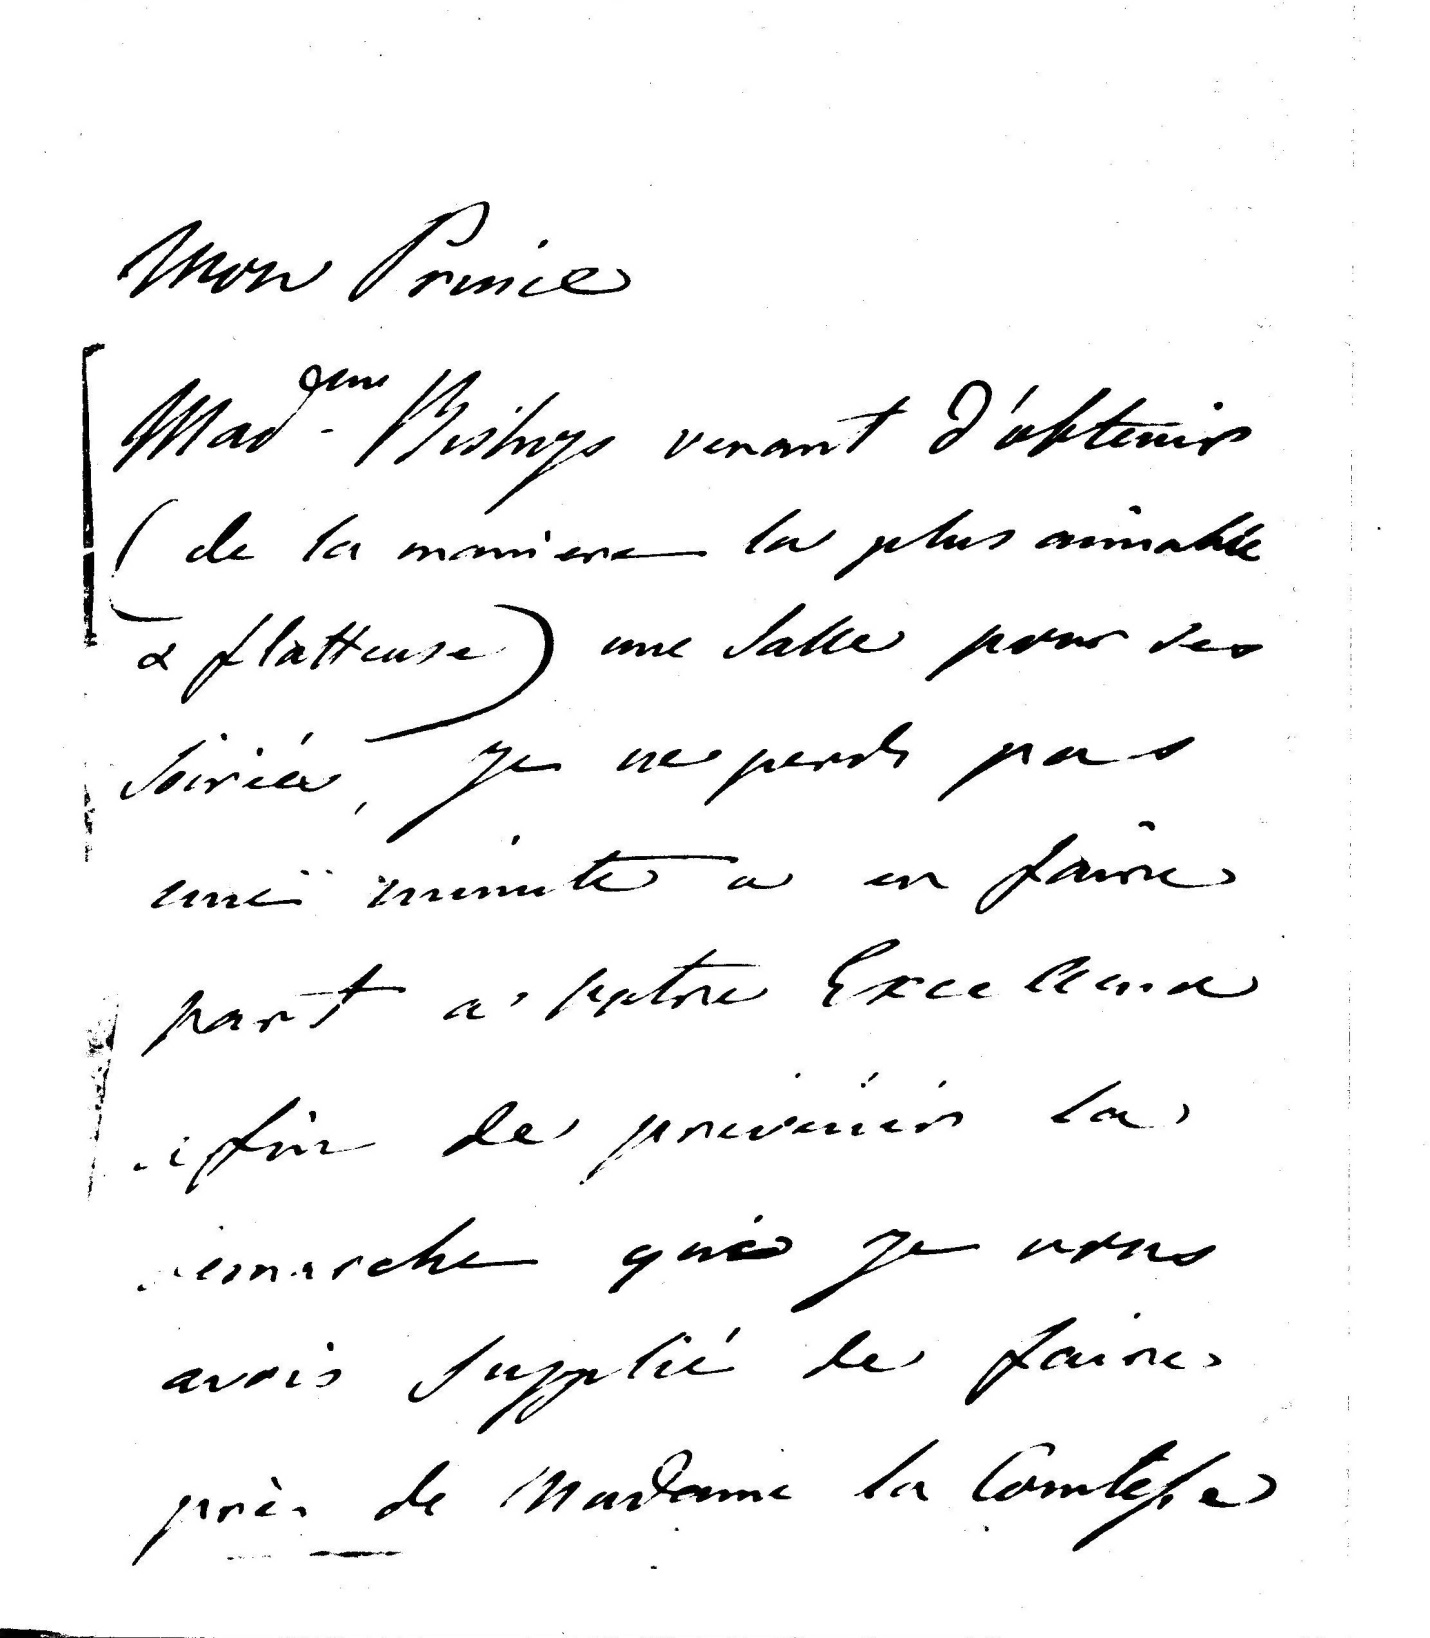 Mon Prince
Mad^eme Bishop venant d'obtenir
(de la maniere la plus aimable
& flatteuse) une Salle pour ses
Soirées, Je ne perds pas
une minute a en faire
part a' Votre Excellence
afin de prevenir la
demarche que Je vous
avois Supplié de faire
près de Madame la Comtesse